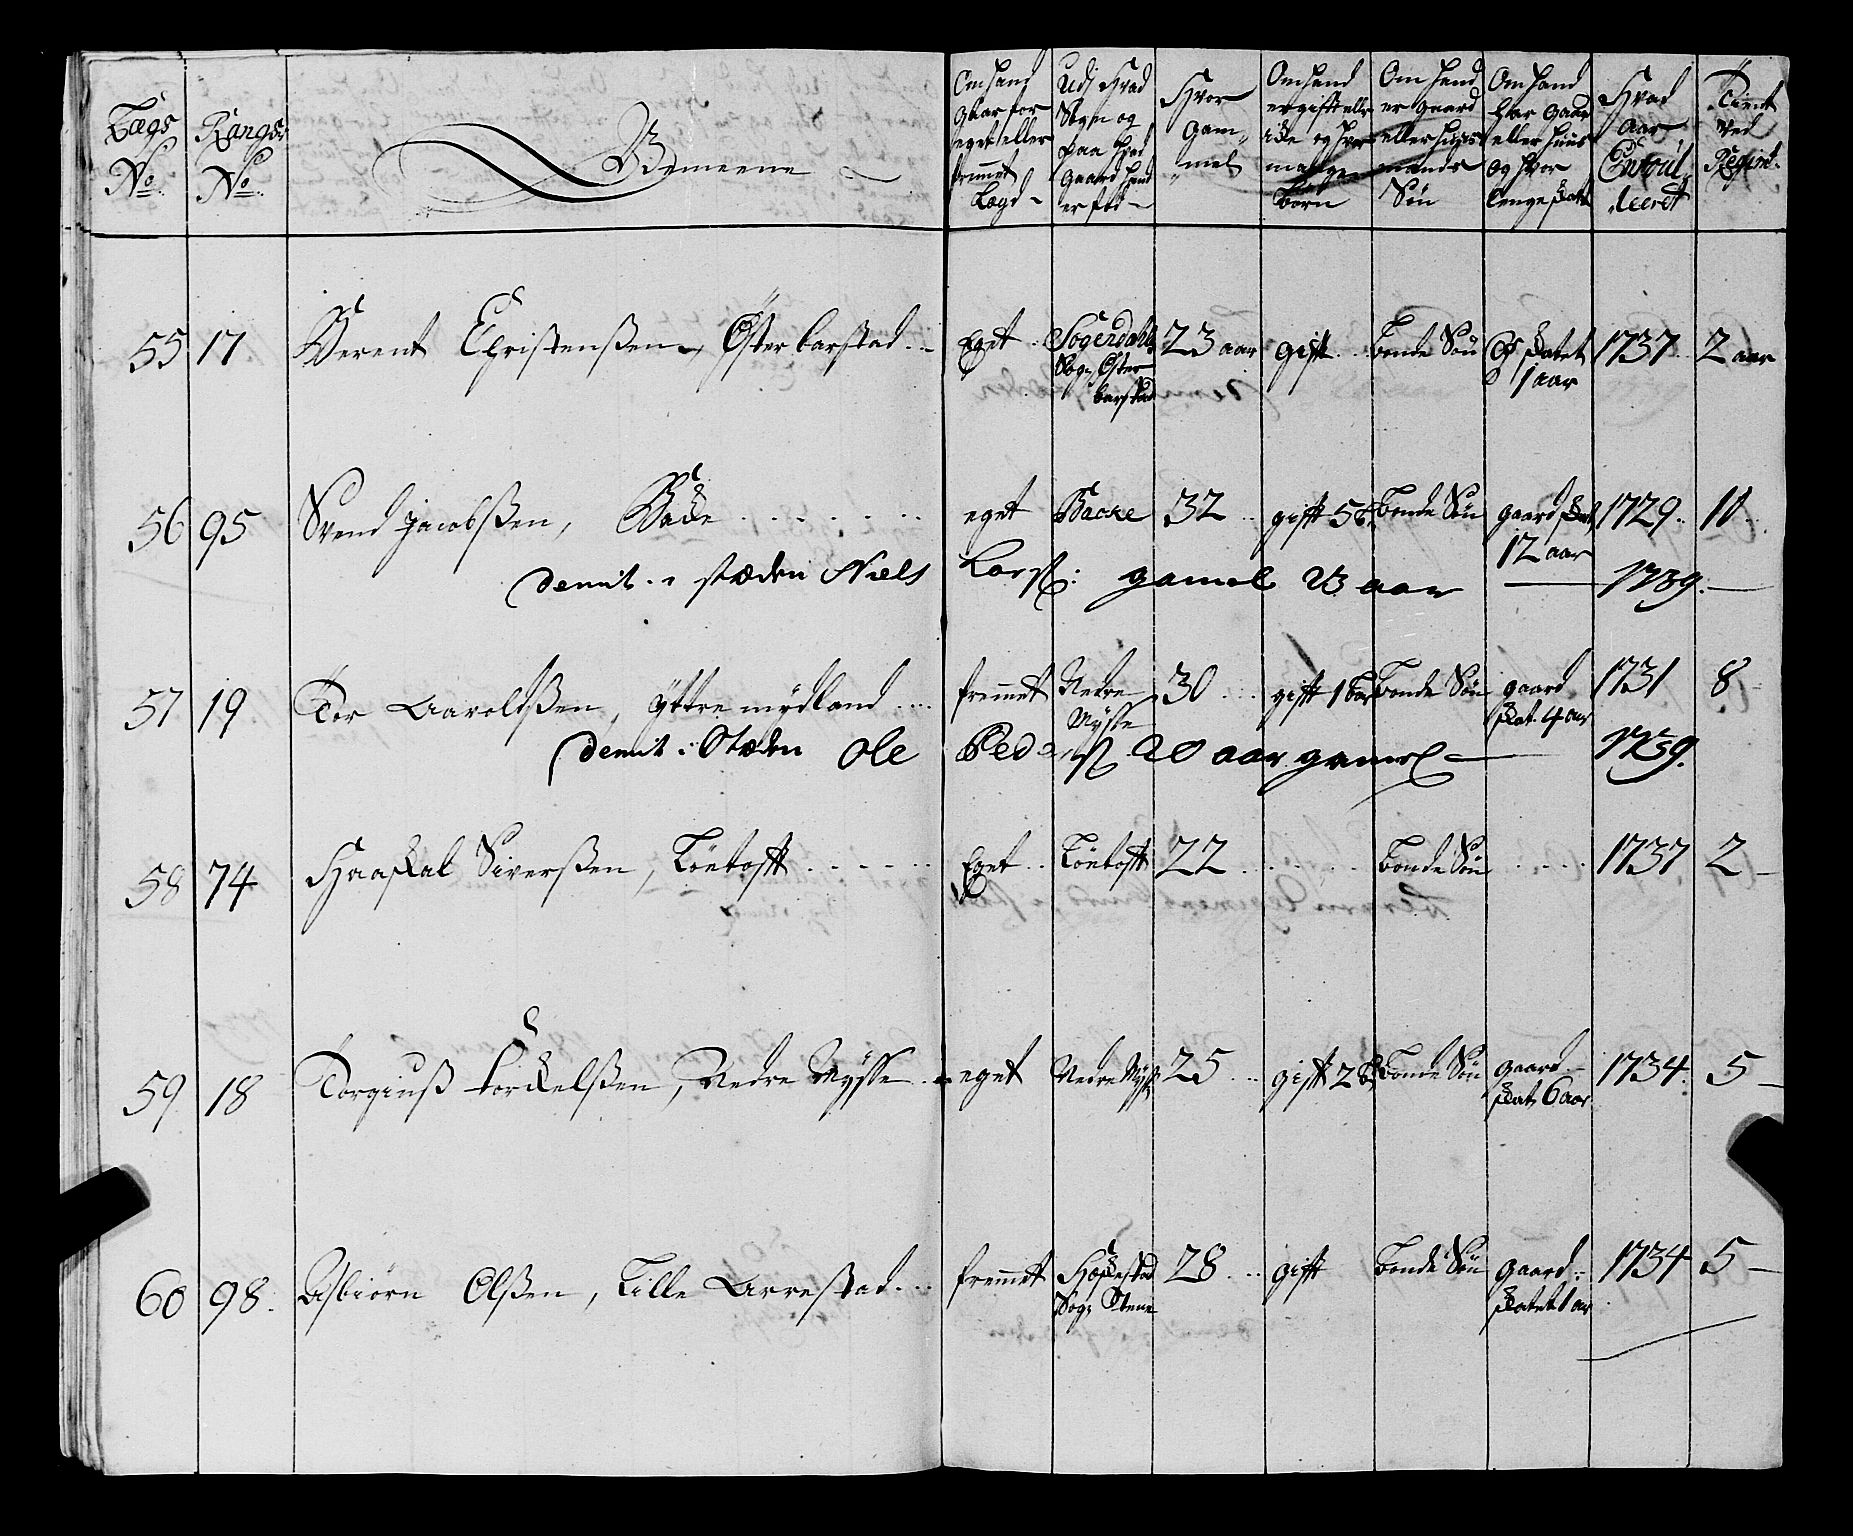 Lægs No.
Rangs No.
Gemeene
Om hand gaar for eget eller fremmet Lægd
Udi hvad Sogn og paa hvad Gaard hand er fød
Hvor gammel
Om hand er gift eller icke og hvor mange Børn
Om hand er gaard eller huusmands Søn
Om hand har gaard eller huus og hvor lenge
Hvad aar Enroulleeret
Tient ved Regim:
55 17 Berent Christenßen, Øster barstad Eget Sogendahls Sogn Øster barstad 23 aar gift bonde Søn 1 aar 1737 2 aar
56 95 Svend Jacobßen, Backe eget Backe 32 gift 5 b: bonde Søn gaard 12 aar 1729 10
demit. i stæden Niels Larß: gamel 23 aar 1739.
57 19 Tor Aaroldßen, Yttre mydland fremmet Nedre Mysse 30 gift 1 bar bonde Søn gaard 4 aar 1731 8
demit i Stæden Ole Peders: 20 aar gamel 1739.
58 74 Haaskal Siverßen, Löetoft Eget Löetoft 22 bonde Søn 1737 2
59 18 Torgiuß torckelßen, Nedre Mysse eget Nedre Myss 25 gift 2 b: bonde Søn gaard 6 aar 1734 5
60 98. Asbiørn Olßen, Lille Arrestad fremmet Hæskestad Sogn Steene 28 gift bonde Søn gaard 1 aar 1734 5